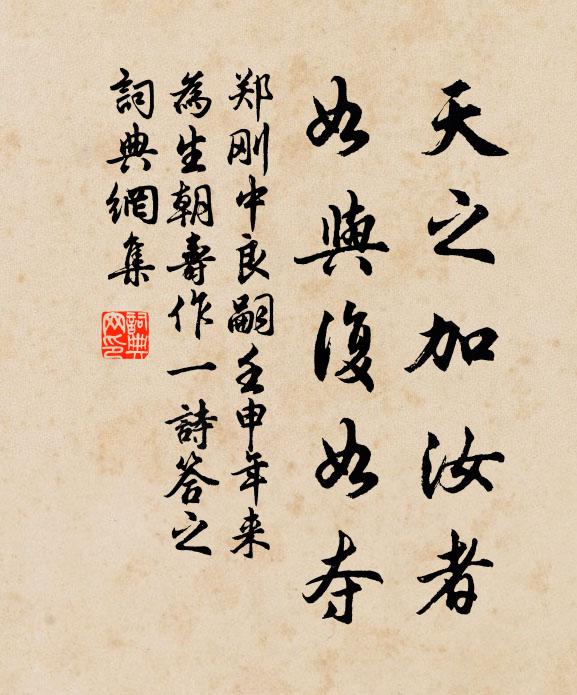 天之加汝者
如與復如夺
郑刚中良嗣壬申年来
為生朝壽作一詩答之
詞典網集
詞典網印